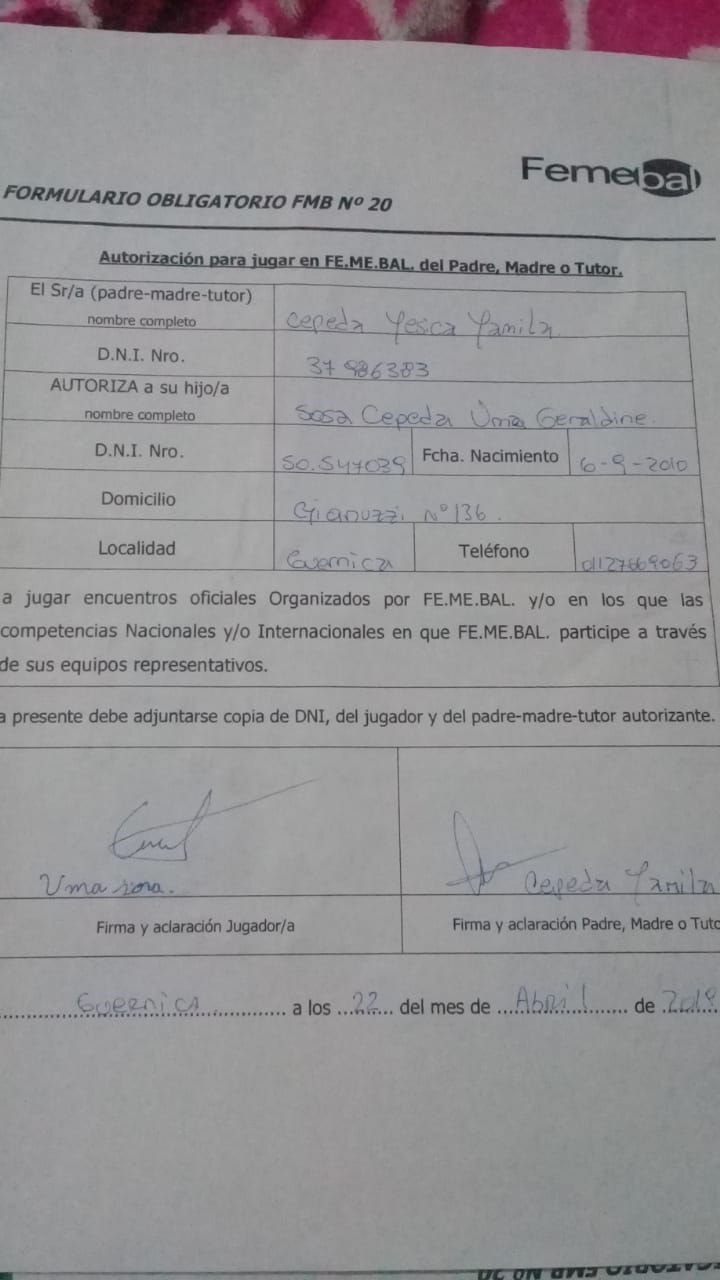 Femebal
FORMULARIO OBLIGATORIO FMB Nº 20
Autorización para jugar en FE.ME.BAL. del Padre, Madre o Tutor.
El Sr/a (padre-madre-tutor)
nombre completo
Cepeda Yesica Yamila
D.N.I. Nro.
37 986383
AUTORIZA a su hijo/a
nombre completo
Sosa Cepeda Uma Geraldine.
D.N.I. Nro.
50.547039
Fcha. Nacimiento
6-9-2010
Domicilio
Gianuzzi Nº 136.
Localidad
Guernica
Teléfono
01127669063
a jugar encuentros oficiales Organizados por FE.ME.BAL. y/o en los que las
competencias Nacionales y/o Internacionales en que FE.ME.BAL. participe a través
de sus equipos representativos.
a presente debe adjuntarse copia de DNI, del jugador y del padre-madre-tutor autorizante.
Uma sosa.
Cepeda Yamila
Firma y aclaración Jugador/a
Firma y aclaración Padre, Madre o Tuto
Guernica a los 22 del mes de Abril de 2019